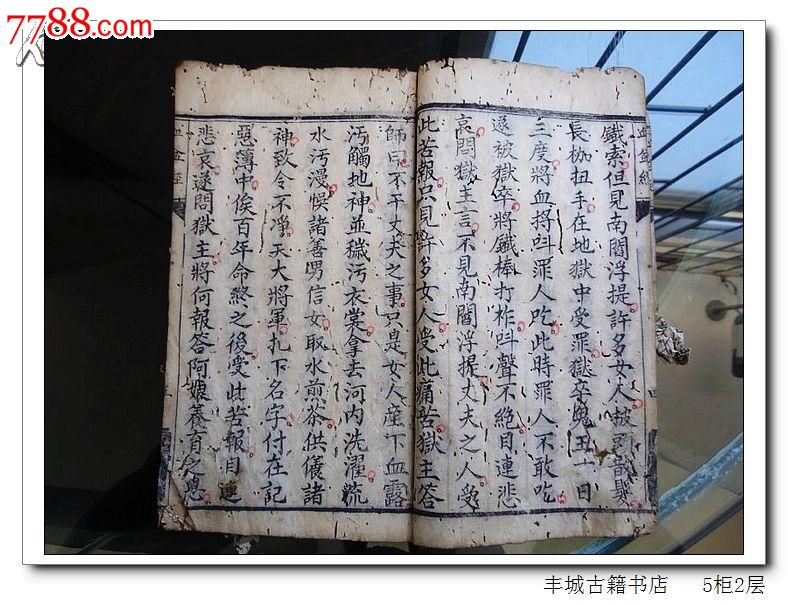 7788.com
鐵索但見南閻浮提許多女人被頭散髮
長枷扭手在地獄中受罪獄卒鬼王一日
三度將血捋呌罪人吃此時罪人不敢吃
遂被獄卒將鐵棒打柞呌聲不絕目連悲
哀問獄主言不見南閻浮提丈夫之人受
此苦報只見許多女人受此痛苦獄主答
師曰不干丈夫之事只是女人産下血露
汚觸地神並穢汚衣裳拿去河内洗濯流
水汚漫悮諸善男信女取水煎茶供養諸
神致令不淨天大將軍扎下名字付在記
惡薄中俟百年命終之後受此苦報目連
悲哀遂問獄主將何報答阿娘養育之恩
血盆經
血盆經
丰城古籍书店 5柜2层